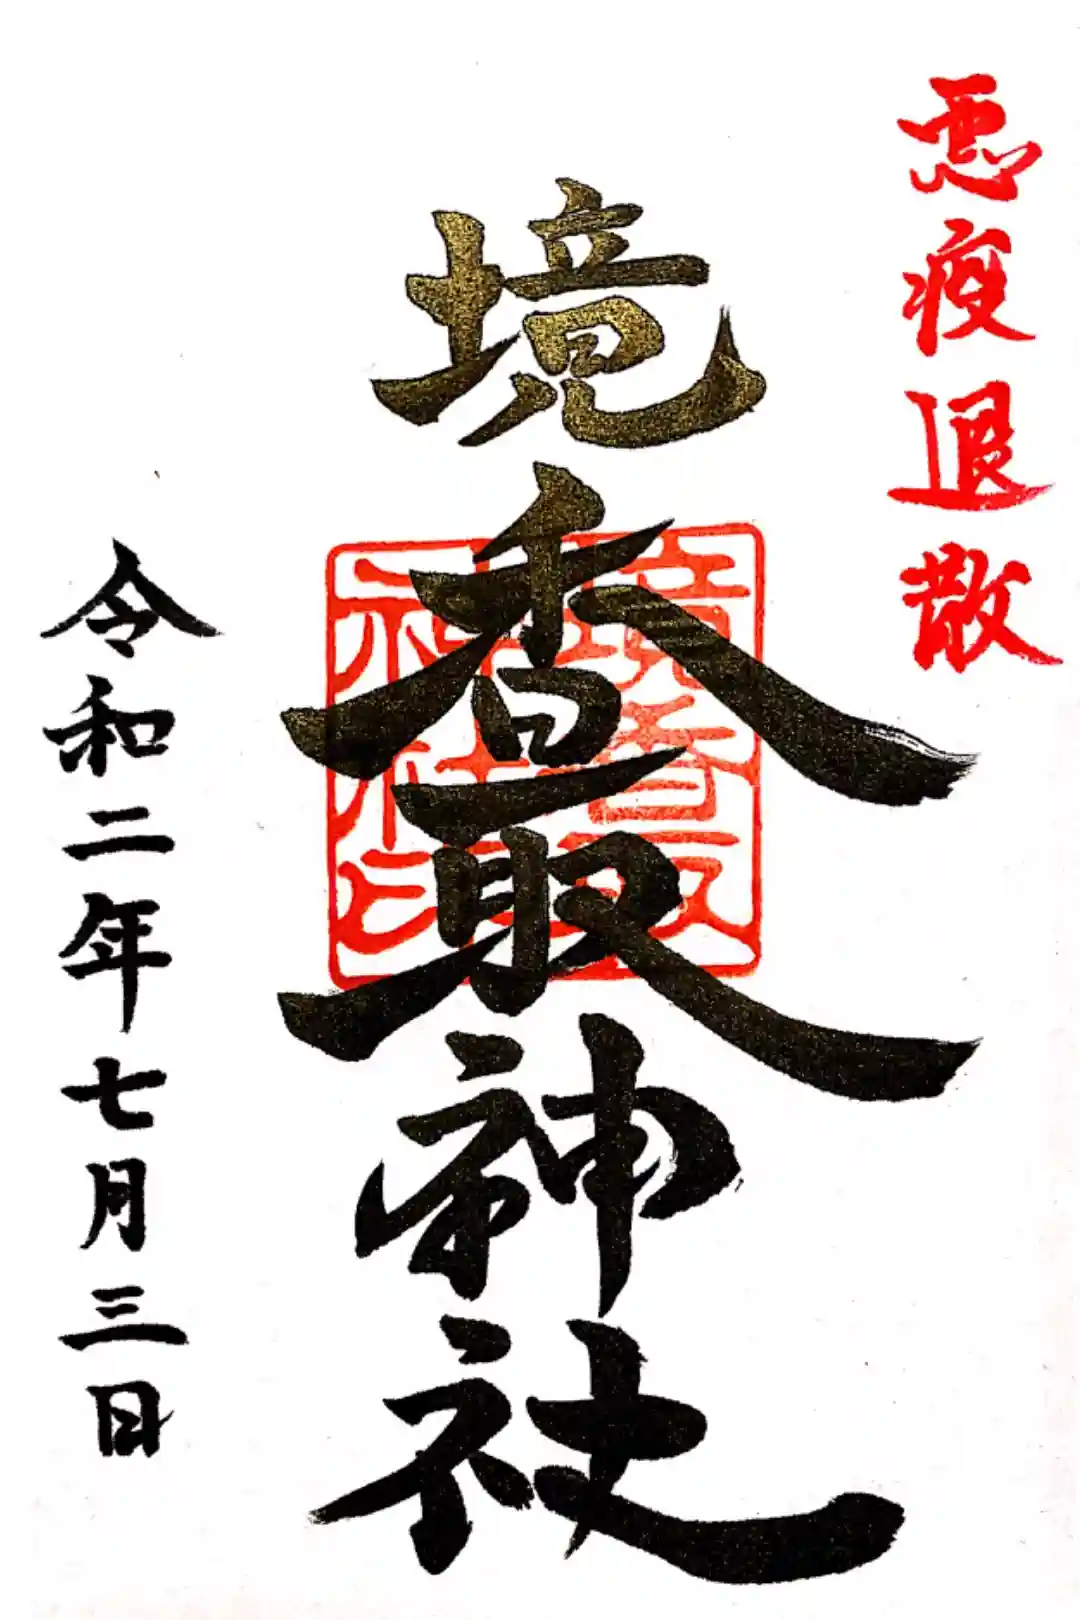 悪疫退散
境香取神社
境香取神社印
令和二年七月三日